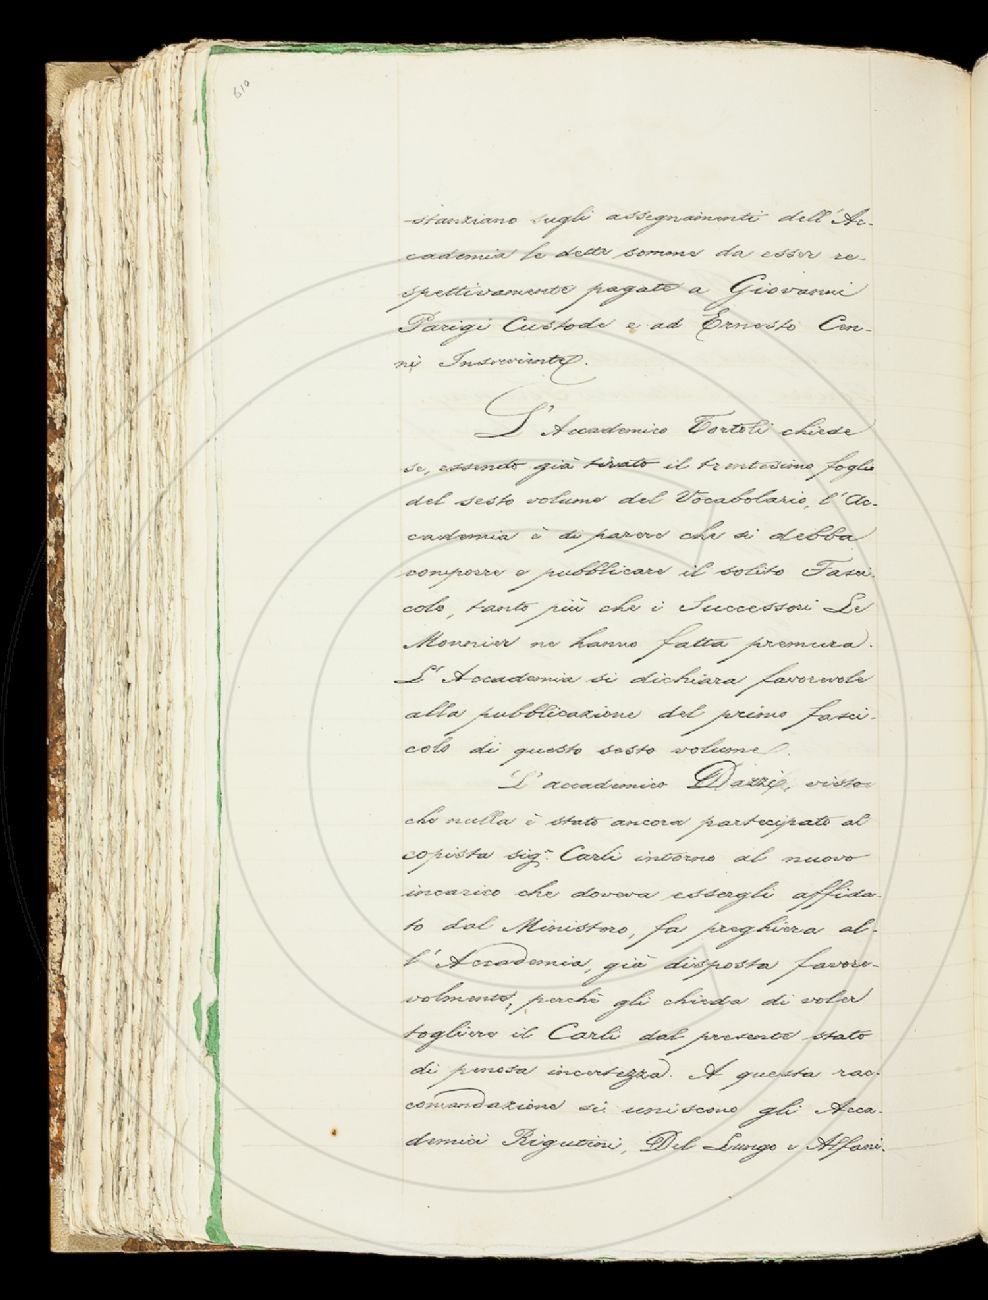 610
-stanziano sugli assegnamenti dell'Ac-
cademia le dette somme da esser re-
spettivamente pagate a Giovanni
Parigi Custode e ad Ernesto Cen-
ni Inserviente.
L'Accademico Tortoli chiede
se, essendo già tirato il trentesimo foglio
del sesto volume del Vocabolario, l'Ac-
cademia è di parere che si debba
comporre e pubblicare il solito Fasci-
colo, tanto più che i Successori Le
Monnier ne hanno fatta premura.
L'Accademia si dichiara favorevole
alla pubblicazione del primo fasci-
colo di questo sesto volume.
L'accademico Dazzi, visto
che nulla è stato ancora partecipato al
copista sigr. Carli intorno al nuovo
incarico che doveva essergli affida-
to dal Ministero, fa preghiera al-
l'Accademia, già disposta favore-
volmente, perchè gli chieda di voler
togliere il Carli dal presente stato
di penosa incertezza. A questa rac-
comandazione si uniscono gli Acca-
demici Rigutini, Del Lungo e Alfani.